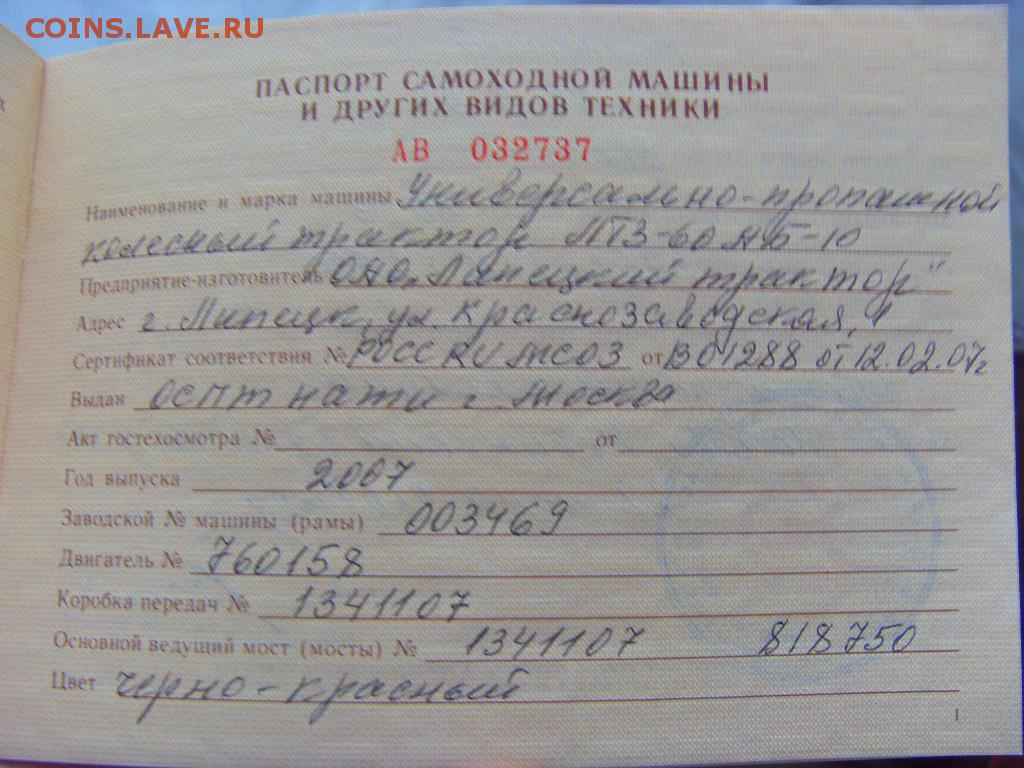 COINS.LAVE.RU
ПАСПОРТ САМОХОДНОЙ МАШИНЫ
И ДРУГИХ ВИДОВ ТЕХНИКИ
АВ 032737
Наименование и марка машины Универсально-пропашной
колесный трактор ЛТЗ-60АБ-10
Предприятие-изготовитель ОАО „Липецкий трактор"
Адрес г. Липецк, ул. Краснозаводская, 1
Сертификат соответствия № РОСС RU МС03 от В01288 от 12.02.07г
Выдан ОСПТ НАТИ г. Москва
Акт гостехосмотра № от
Год выпуска 2007
Заводской № машины (рамы) 003469
Двигатель № 760158
Коробка передач № 1341107
Основной ведущий мост (мосты) № 1341107 818750
Цвет черно-красный
1